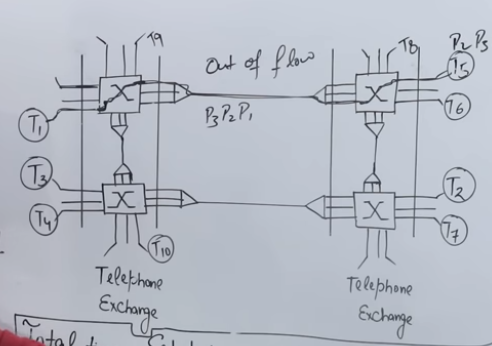 T9
Out of flow
T8
P2 P3
T5
T1
P3P2P1
T6
T3
T2
T4
T7
T10
Telephone
Exchange
Telephone
Exchange